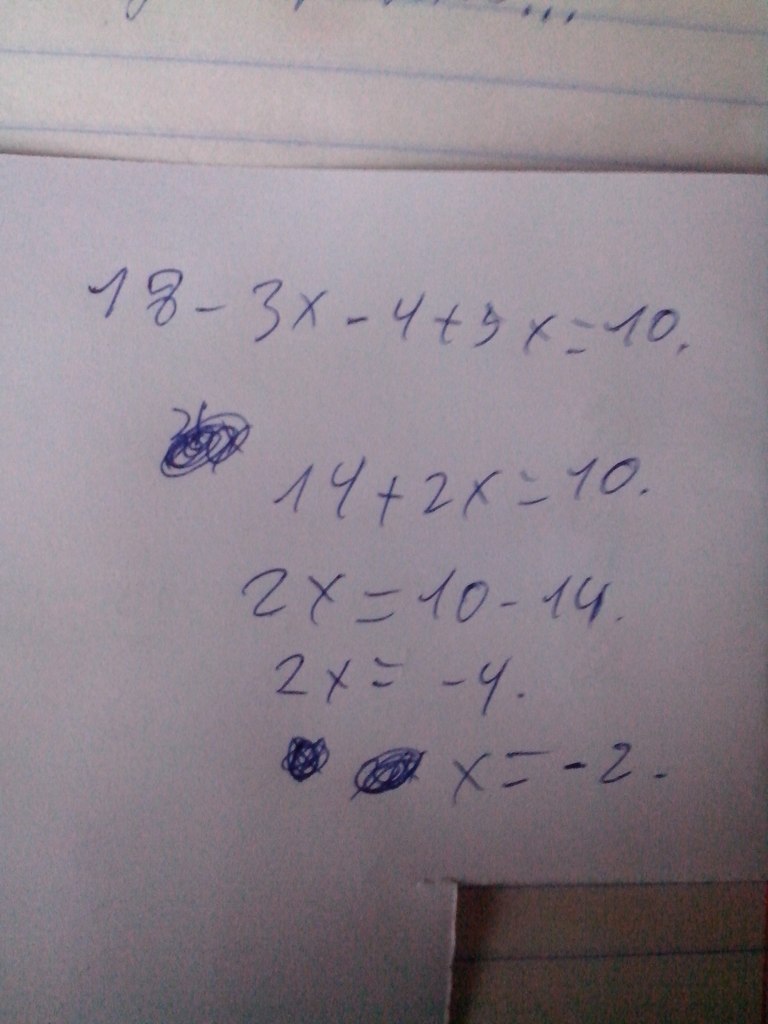 18 - 3x - 4 + 5x = 10.
14 + 2x = 10.
2x = 10 - 14.
2x = -4.
x = -2.